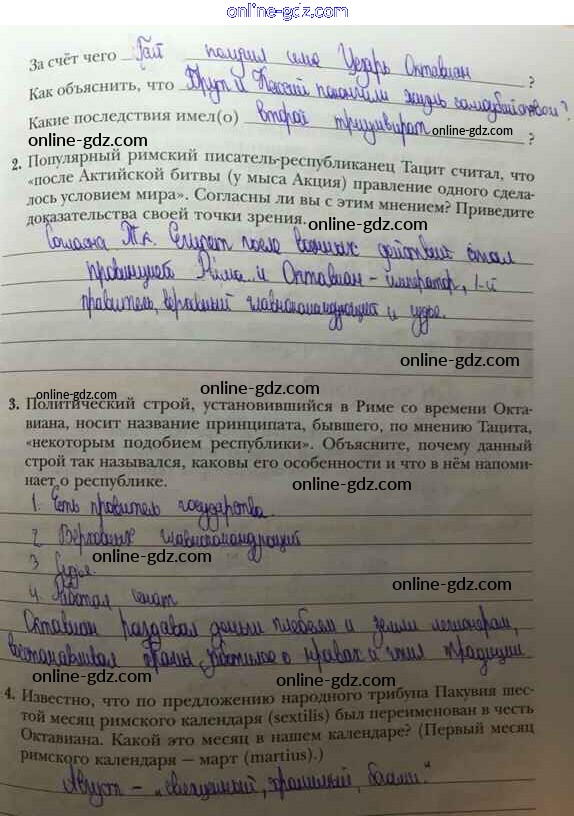 online-gdz.com
За счёт чего Гай получил имя Цезарь Октавиан ?
Как объяснить, что Брут и Кассий покончили жизнь самоубийством?
Какие последствия имел(о) второй триумвират ?
online-gdz.com online-gdz.com
2. Популярный римский писатель-республиканец Тацит считал, что
«после Актийской битвы (у мыса Акция) правление одного сдела-
лось условием мира». Согласны ли вы с этим мнением? Приведите
доказательства своей точки зрения. online-gdz.com
Согласна Т.к. Египет после военных действий стал
провинцией Рима и Октавиан - император, 1-й
online-gdz.com
правитель, верховный главнокомандующий и судья.
online-gdz.com
online-gdz.com
3. Политический строй, установившийся в Риме со времени Окта-
виана, носит название принципата, бывшего, по мнению Тацита,
«некоторым подобием республики». Объясните, почему данный
строй так назывался, каковы его особенности и что в нём напоми-
нает о республике. online-gdz.com
1. Есть правитель государства.
2. Верховный главнокомандующий
online-gdz.com
3 Судья.
online-gdz.com
4. Работал сенат
Октавиан раздавал деньги плебеям и земли легионерам,
online-gdz.com
восстанавливал храмы, заботился о нравах и чтил традиции
online-gdz.com
4. Известно, что по предложению народного трибуна Пакувия шес-
той месяц римского календаря (sextilis) был переименован в честь
Октавиана. Какой это месяц в нашем календаре? (Первый месяц
римского календаря — март (martius).) online-gdz.com
Август - „священный, хранимый, богами."
online-gdz.com